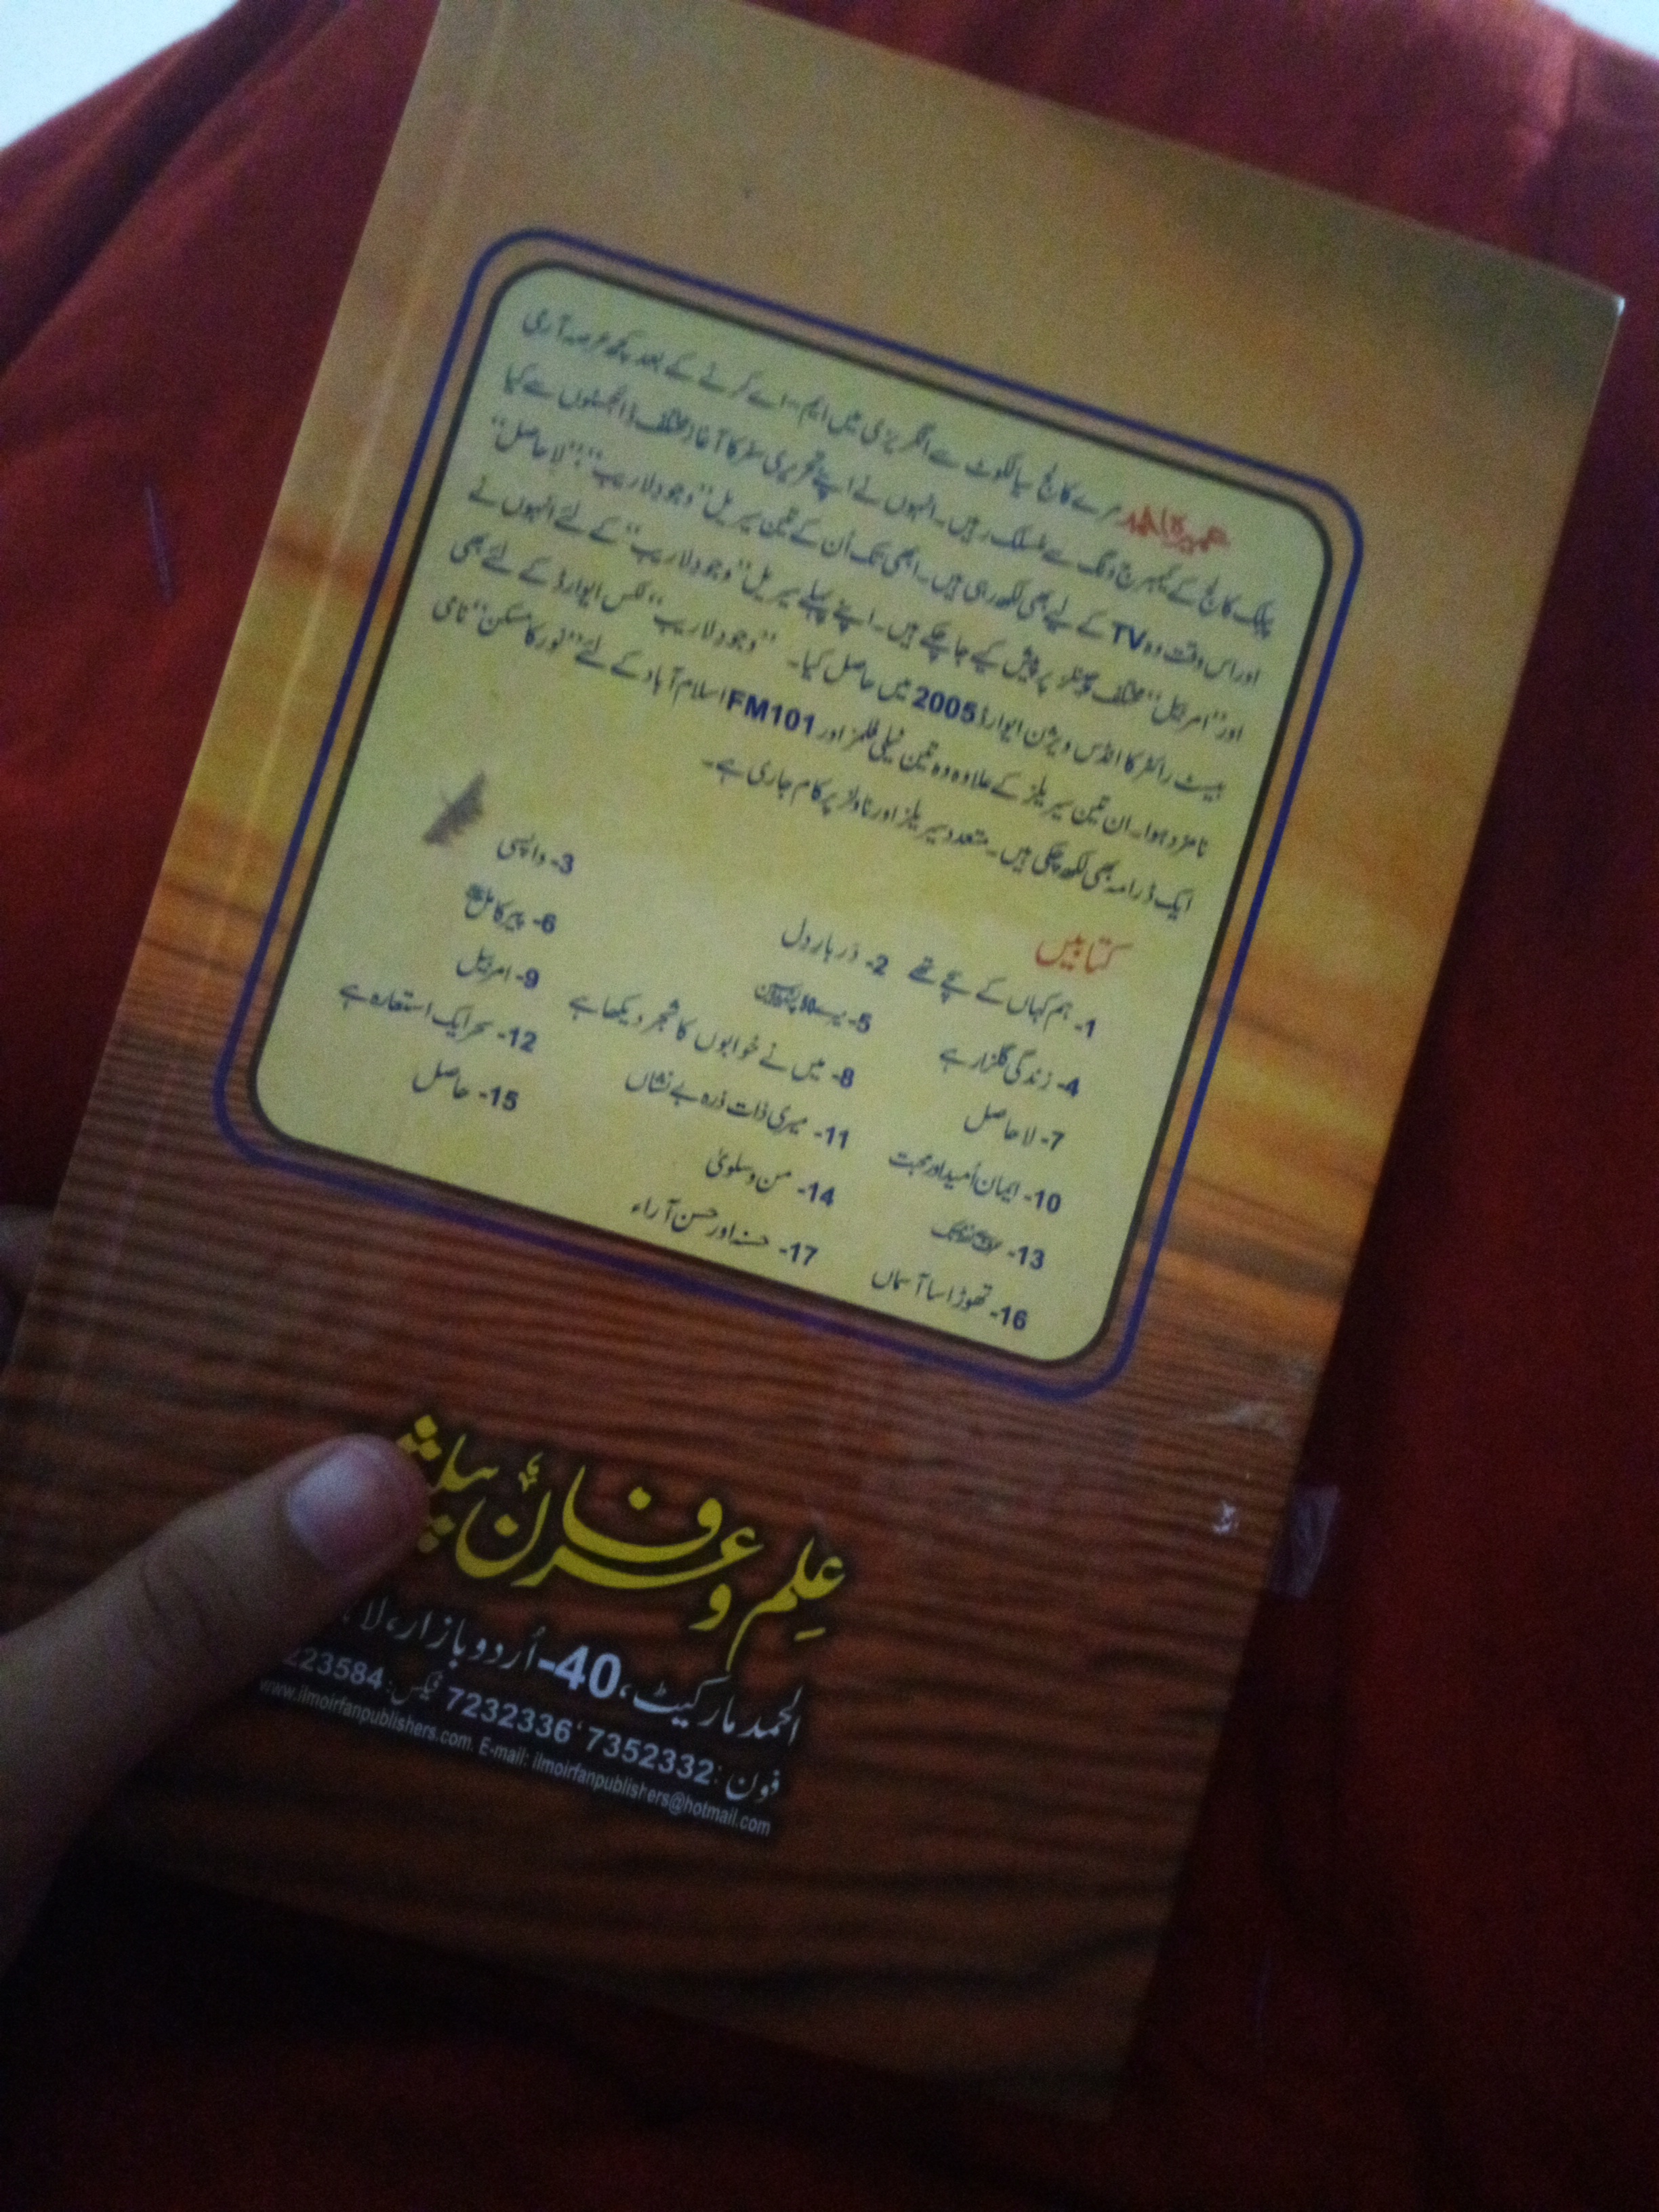 عمیرہ احمد مرے کالج سیالکوٹ سے انگریزی میں ایم-اے کرنے کے بعد کچھ عرصہ آرمی
پبلک کالج کے کیمبرج ونگ سے منسلک رہیں۔ انہوں نے اپنے تحریری سفر کا آغاز مختلف ڈائجسٹوں سے کیا
اور اس وقت وہ TV کے لیے بھی لکھ رہی ہیں۔ ابھی تک اُن کے تین سیریل ”وجودِ لاریب“، ”لاحاصل“
اور ”امربیل“ مختلف چینلز پر پیش کیے جا چکے ہیں۔ اپنے پہلے سیریل ”وجودِ لاریب“ کے لئے انہوں نے
بیسٹ رائٹر کا انڈس ویژن ایوارڈ 2005 میں حاصل کیا۔ ”وجودِ لاریب“ لکس ایوارڈ کے لئے بھی
نامزد ہوا۔ ان تین سیریلز کے علاوہ وہ تین ٹیلی فلمز اور FM101 اسلام آباد کے لئے ”نور کا مسکن“ نامی
ایک ڈرامہ بھی لکھ چکی ہیں۔ متعدد سیریلز اور ناولز پر کام جاری ہے۔
کتابیں
1- ہم کہاں کے سچے تھے 2- دربارِ دل 3- واپسی
4- زندگی گلزار ہے 5- میرے 6- پیرِ کاملؐ
7- لاحاصل 8- میں نے خوابوں کا شجر دیکھا ہے 9- امربیل
10- ایمان اُمید اور محبت 11- میری ذات ذرہ بے نشاں 12- سحر ایک استعارہ ہے
13- 14- من و سلویٰ 15- حاصل
16- تھوڑا سا آسماں 17- حسنہ اور حسن آراء
علم و عرفان پبلشر
الحمد مارکیٹ، 40-اُردو بازار، لا
فون: 7352332، 7232336 فیکس: 223584
www.ilmoirfanpublishers.com. E-mail: ilmoirfanpublishers@hotmail.com